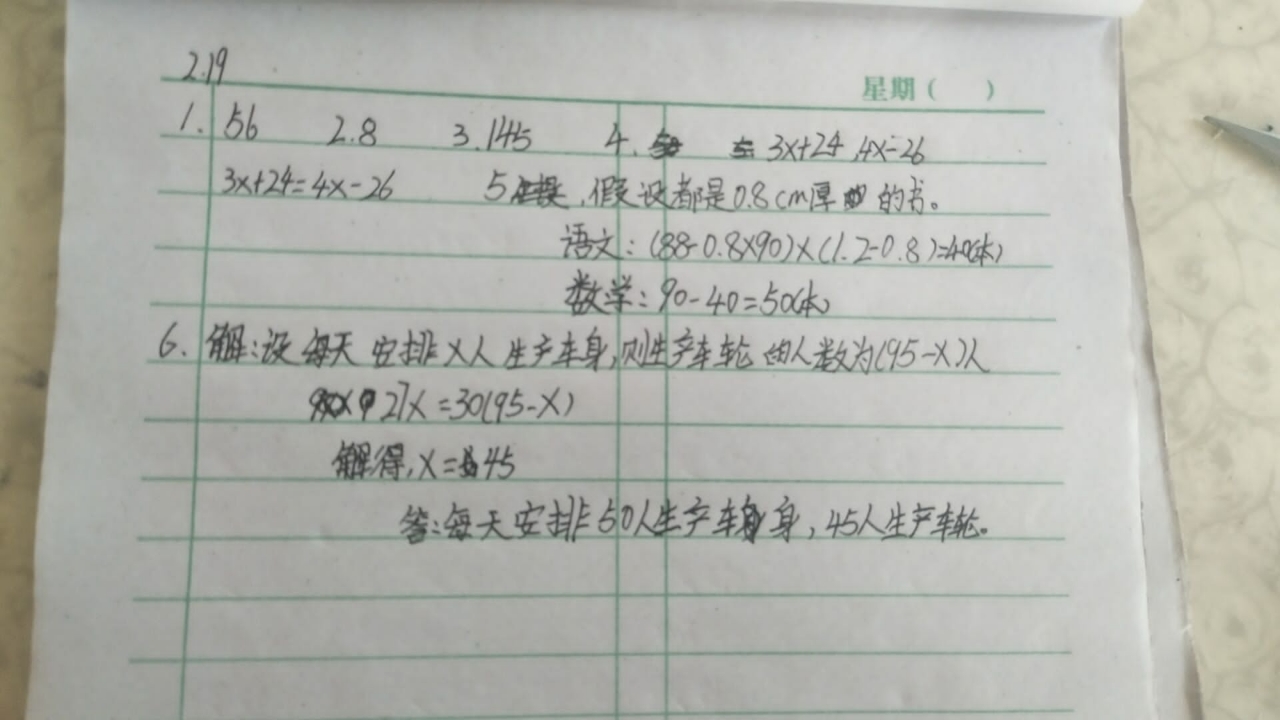 2.19
星期( )
1. 56 2.8 3.145 4. 3x+24, 4x-26
3x+24=4x-26 5 ,假设都是0.8cm厚的书。
语文:(88-0.8×90)×(1.2-0.8)=40(本)
数学:90-40=50(本)
6. 解:设每天安排x人生产车身,则生产车轮由人数为(95-x)人
27x=30(95-x)
解得,x=45
答:每天安排50人生产车身,45人生产车轮。